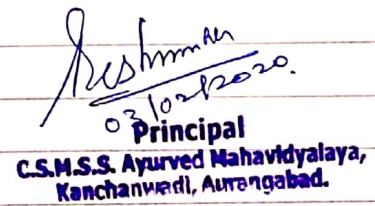 03/02/2020.
Principal
C.S.M.S.S. Ayurved Mahavidyalaya,
Kanchanwadi, Aurangabad.